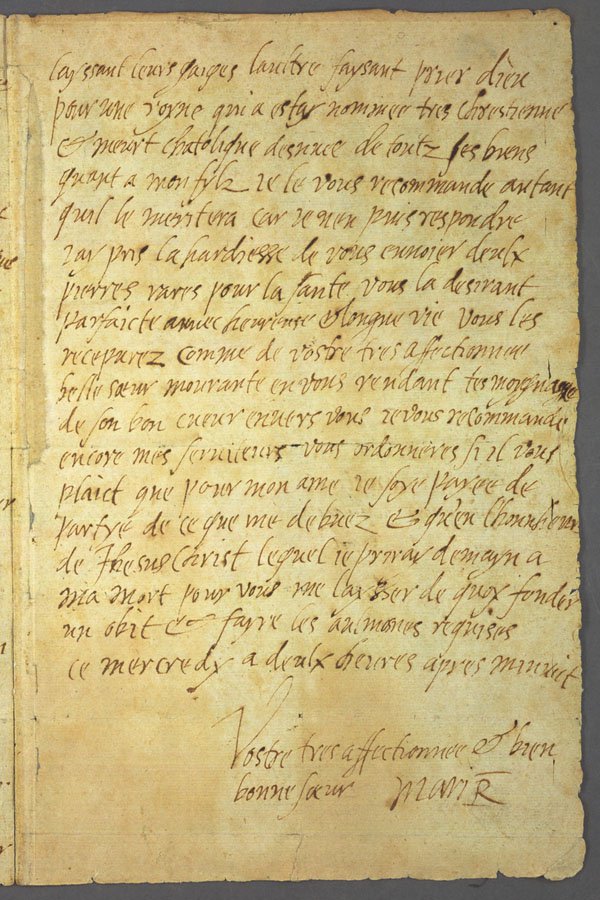 layssant leurs gaiges laultre faysant prier dieu
pour une royne qui a estay nommee tres chrestienne
& meurt chatolique desnuee de toutz ses biens
quant a mon filz ie le vous recommande autant
quil le meritera car ie nen puis respondre
iay pris la hardiesse de vous envoier deulx
pierres rares pour la sante vous la desirant
parfaicte avvec heureuse & longue vie vous les
recepvrez comme de vostre tres affectionnee
belle sœur mourante en vous rendant tesmoygnage
de son bon cueur envers vous ie vous recommande
encore mes serviteurs vous ordonneres si il vous
plaict que pour mon ame ie soye payee de
partye de ce que me debvez & qu'en l'honnseur
de Jhesus Christ lequel ie priray demayn a
ma mort pour vous me laysser de quoy fonder
un obit & fayre les aulmones requises
ce mercredy a deulx heures apres minuit
Vostre tres affectionnee & bien
bonne sœur Mari R